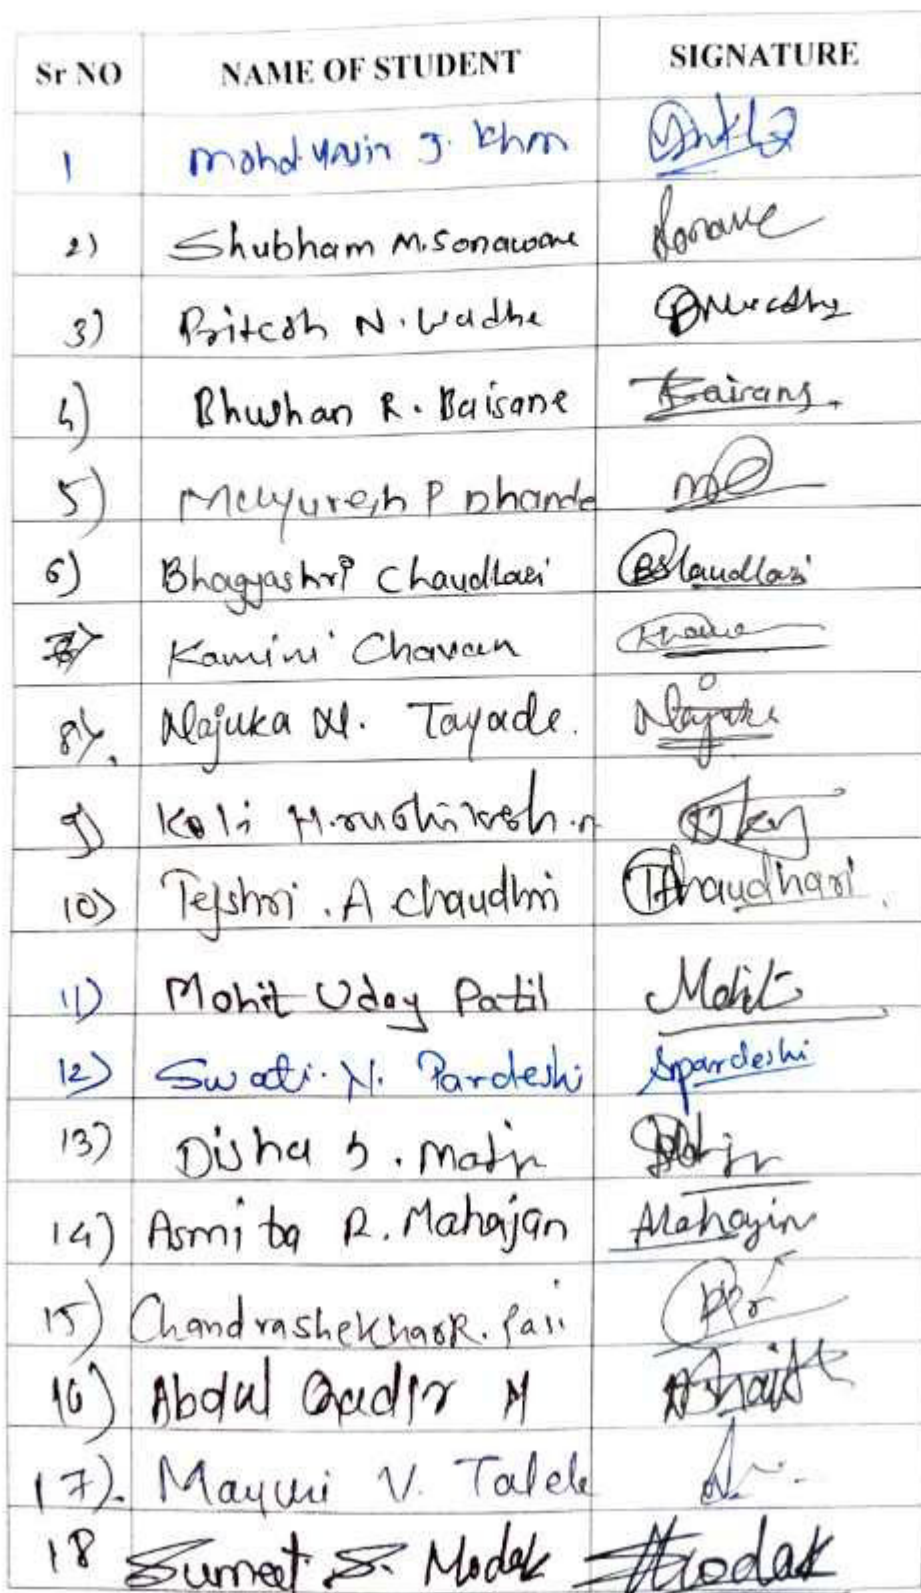 Sr NO NAME OF STUDENT SIGNATURE
1 Mohd J. Khan
2) Shubham M. Sonawane Sonawane
3) Pritesh N. Wadhe
4) Bhushan R. Baisane
5) Mayuresh P Dhande
6) Bhagyashri Chaudhari BSChaudhari
7) Kamini Chavan
8). Najuka N. Tayade. Najuka
9) Koli Hrushikesh.n
10) Tejshri .A Chaudhri TAChaudhari.
11) Mohit Uday Patil Mohit
12) Swati. N. Pardeshi Spardeshi
13) Disha S.
14) Asmita R. Mahajan AMahajan
15) Chandrashekhar R.
16) Abdul Qadir M AShaikh
17). Mayuri V. Talele
18 Sumeet S. Modak Modak